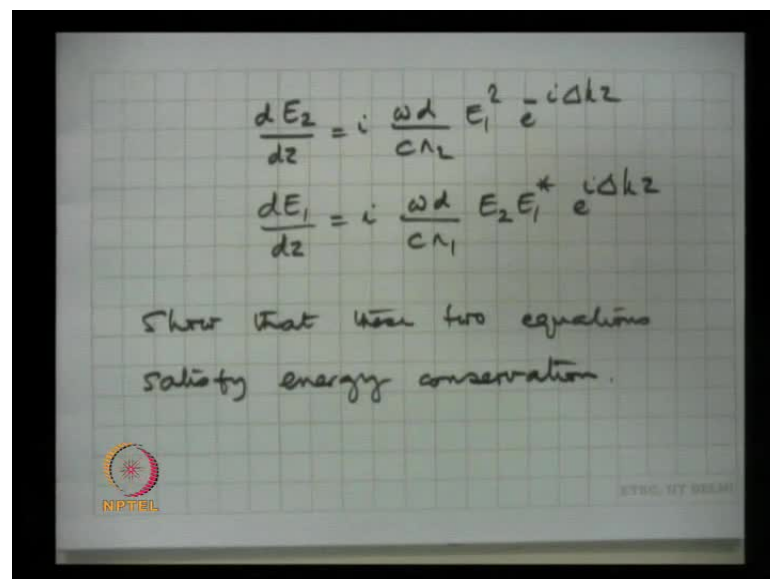 dE₂/dz = i ωd/cn₂ E₁² e^-iΔkz
dE₁/dz = i ωd/cn₁ E₂E₁* e^iΔkz
Show that these two equations
satisfy energy conservation.
NPTEL
ETSC, IIT DELHI